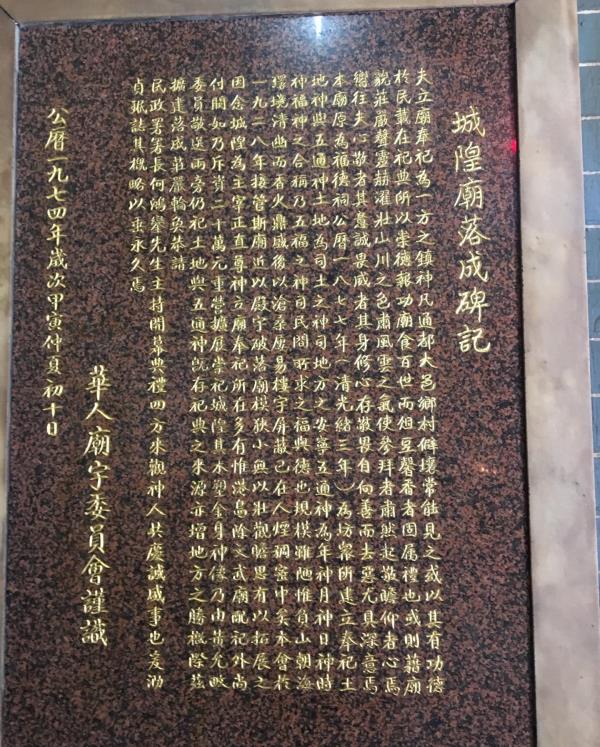 城隍廟落成碑記
夫立廟奉祀為一方之鎮神凡通都大邑鄉村僻壤常能見之蓋以其有功德
於民載在祀典所以崇德報功廟食百世而俎豆馨香者固属禮也或則藉廟
貌莊嚴聲靈赫濯壯山川之色肅風雲之氣使參拜者肅然起敬瞻仰者心焉
嚮往夫心敬者其意誠畏威者其身修心存敬畏自向善而去惡尤具深意焉
本廟原為福德祠公曆一八七七年(清光緒三年)為坊眾所建立奉祀土
地神與五通神土地為司土之神司地方之安寧五通神為年神月神日神時
神福神之合稱乃五福之神司民間所求之福與德也規模雖陋惟負山朝海
環境清幽而香火鼎盛後以滄桑屡易樓宇屏蔽已在人煙稠宻中矣本會於
一九二八年接管斯廟近以殿宇破落廟模狹小無以壯觀瞻思有以拓展之
因念城隍為主宰正直尊神立廟奉祀所在多有惟港島除文武廟配祀外尚
付闕如乃斥資二十萬元重營擴展崇祀城隍其木塑金身神像乃由黃允畋
委員敬送兩旁仍祀土地與五通神旣存祀典之來源亦增地方之勝概際茲
擴建落成莊嚴輪奐恭請
民政署署長何鴻鑾先生主持開幕典禮四方來觀神人共慶誠盛事也爰泐
貞珉誌其概略以垂永久焉
華人廟宇委員會謹識
公曆一九七四年歲次甲寅仲夏初十日